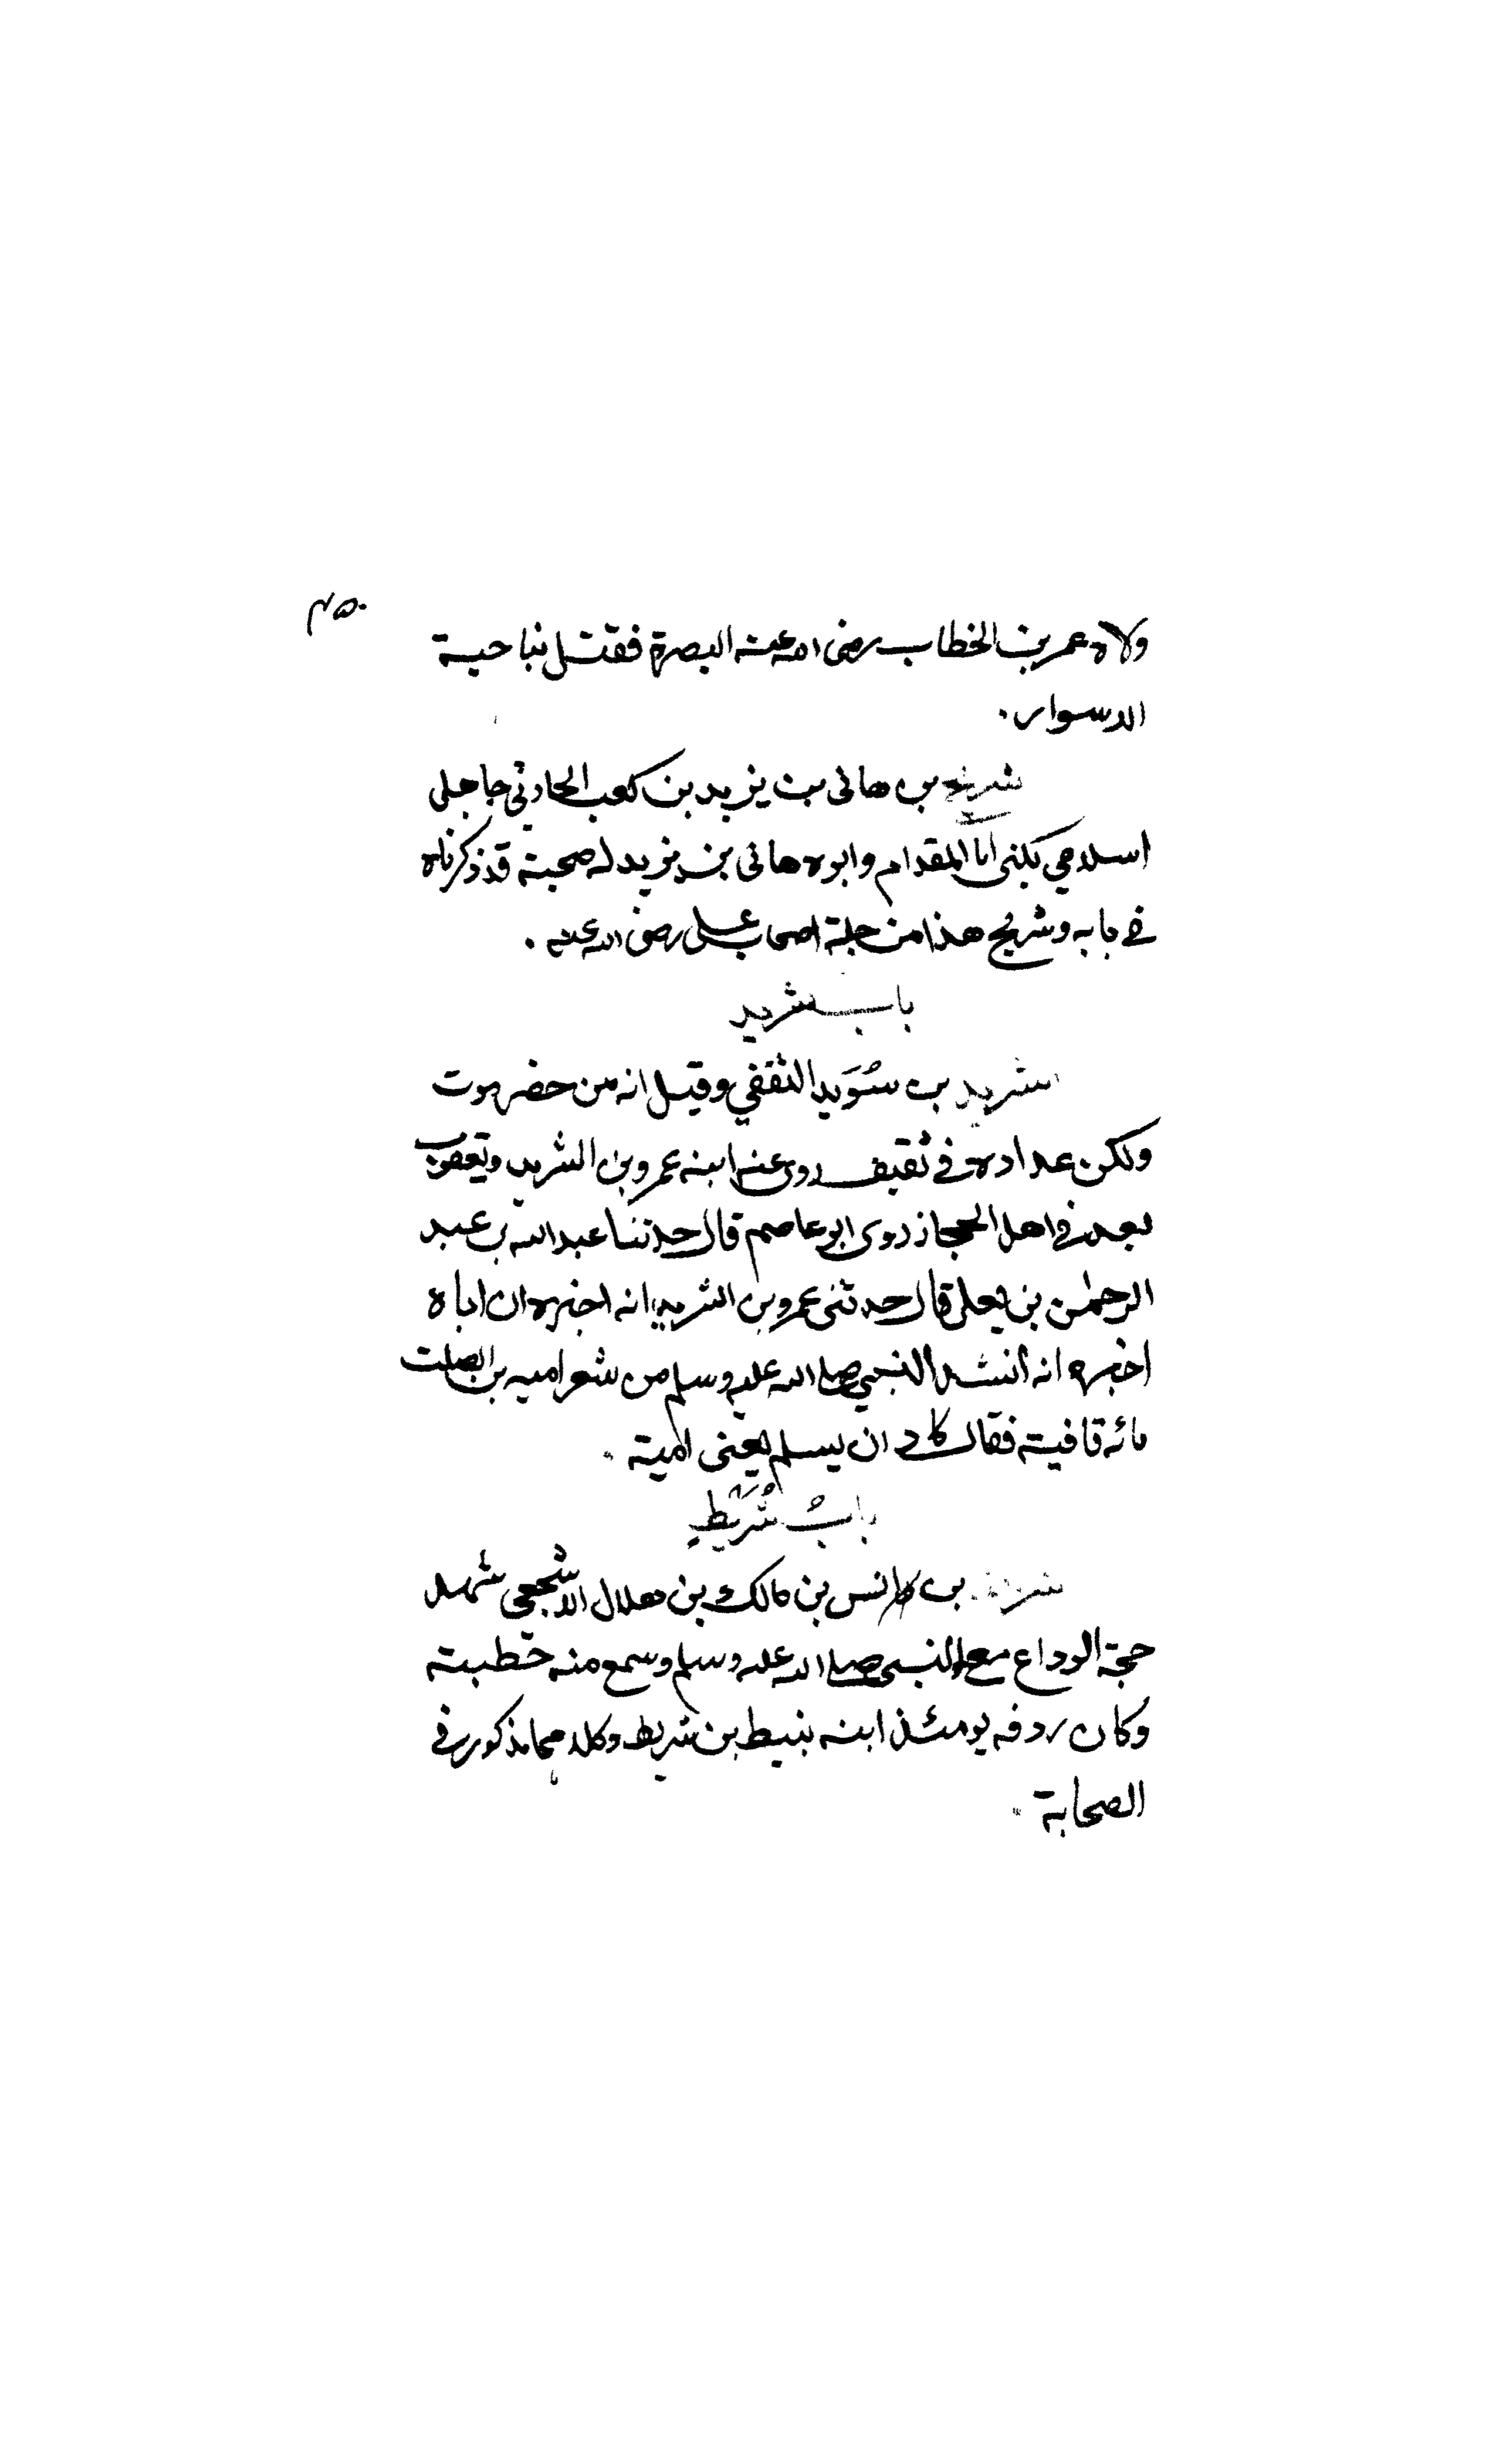 ٤٥٠
ولاه عمر بن الخطاب رضى الله عنه البصرة فقتل بناحية
الاسوار.
شريح بن هانى بن يزيد بن كعب الحارثي جاهلى
اسلامي يكنى ابا المقدام وابوه هانى بن يزيد له صحبة قد ذكرناه
في بابه وشريح هذا من جلة اصحاب على رضى الله عنه .
باب شريد
شريد بن سُوَيد الثقفي وقيل انه من حضرموت
ولكن عداده في ثقيف روى عنه ابنه عمرو بن الشريد ويعقوب
يعد في اهل الحجاز روى ابو عاصم قال حدثنا عبد الله بن عبد
الرحمٰن بن يعلى قال حدثنى عمرو بن الشريد انه اخبره ان اباه
اخبره انه انشد النبي صلى الله عليه وسلم من شعر اميه بن الصلت
مائه قافية فقال كاد ان يسلم يعنى امية .
بابُ شُرَيْط
شريط بن انس بن مالك بن هلال الاشجعى شهد
حجة الوداع مع النبى صلى الله عليه وسلم وسمع منه خطبته
وكان ردفه يومئذ ابنه نبيط بن شريط وكلاهما مذكور فى
الصحابة .